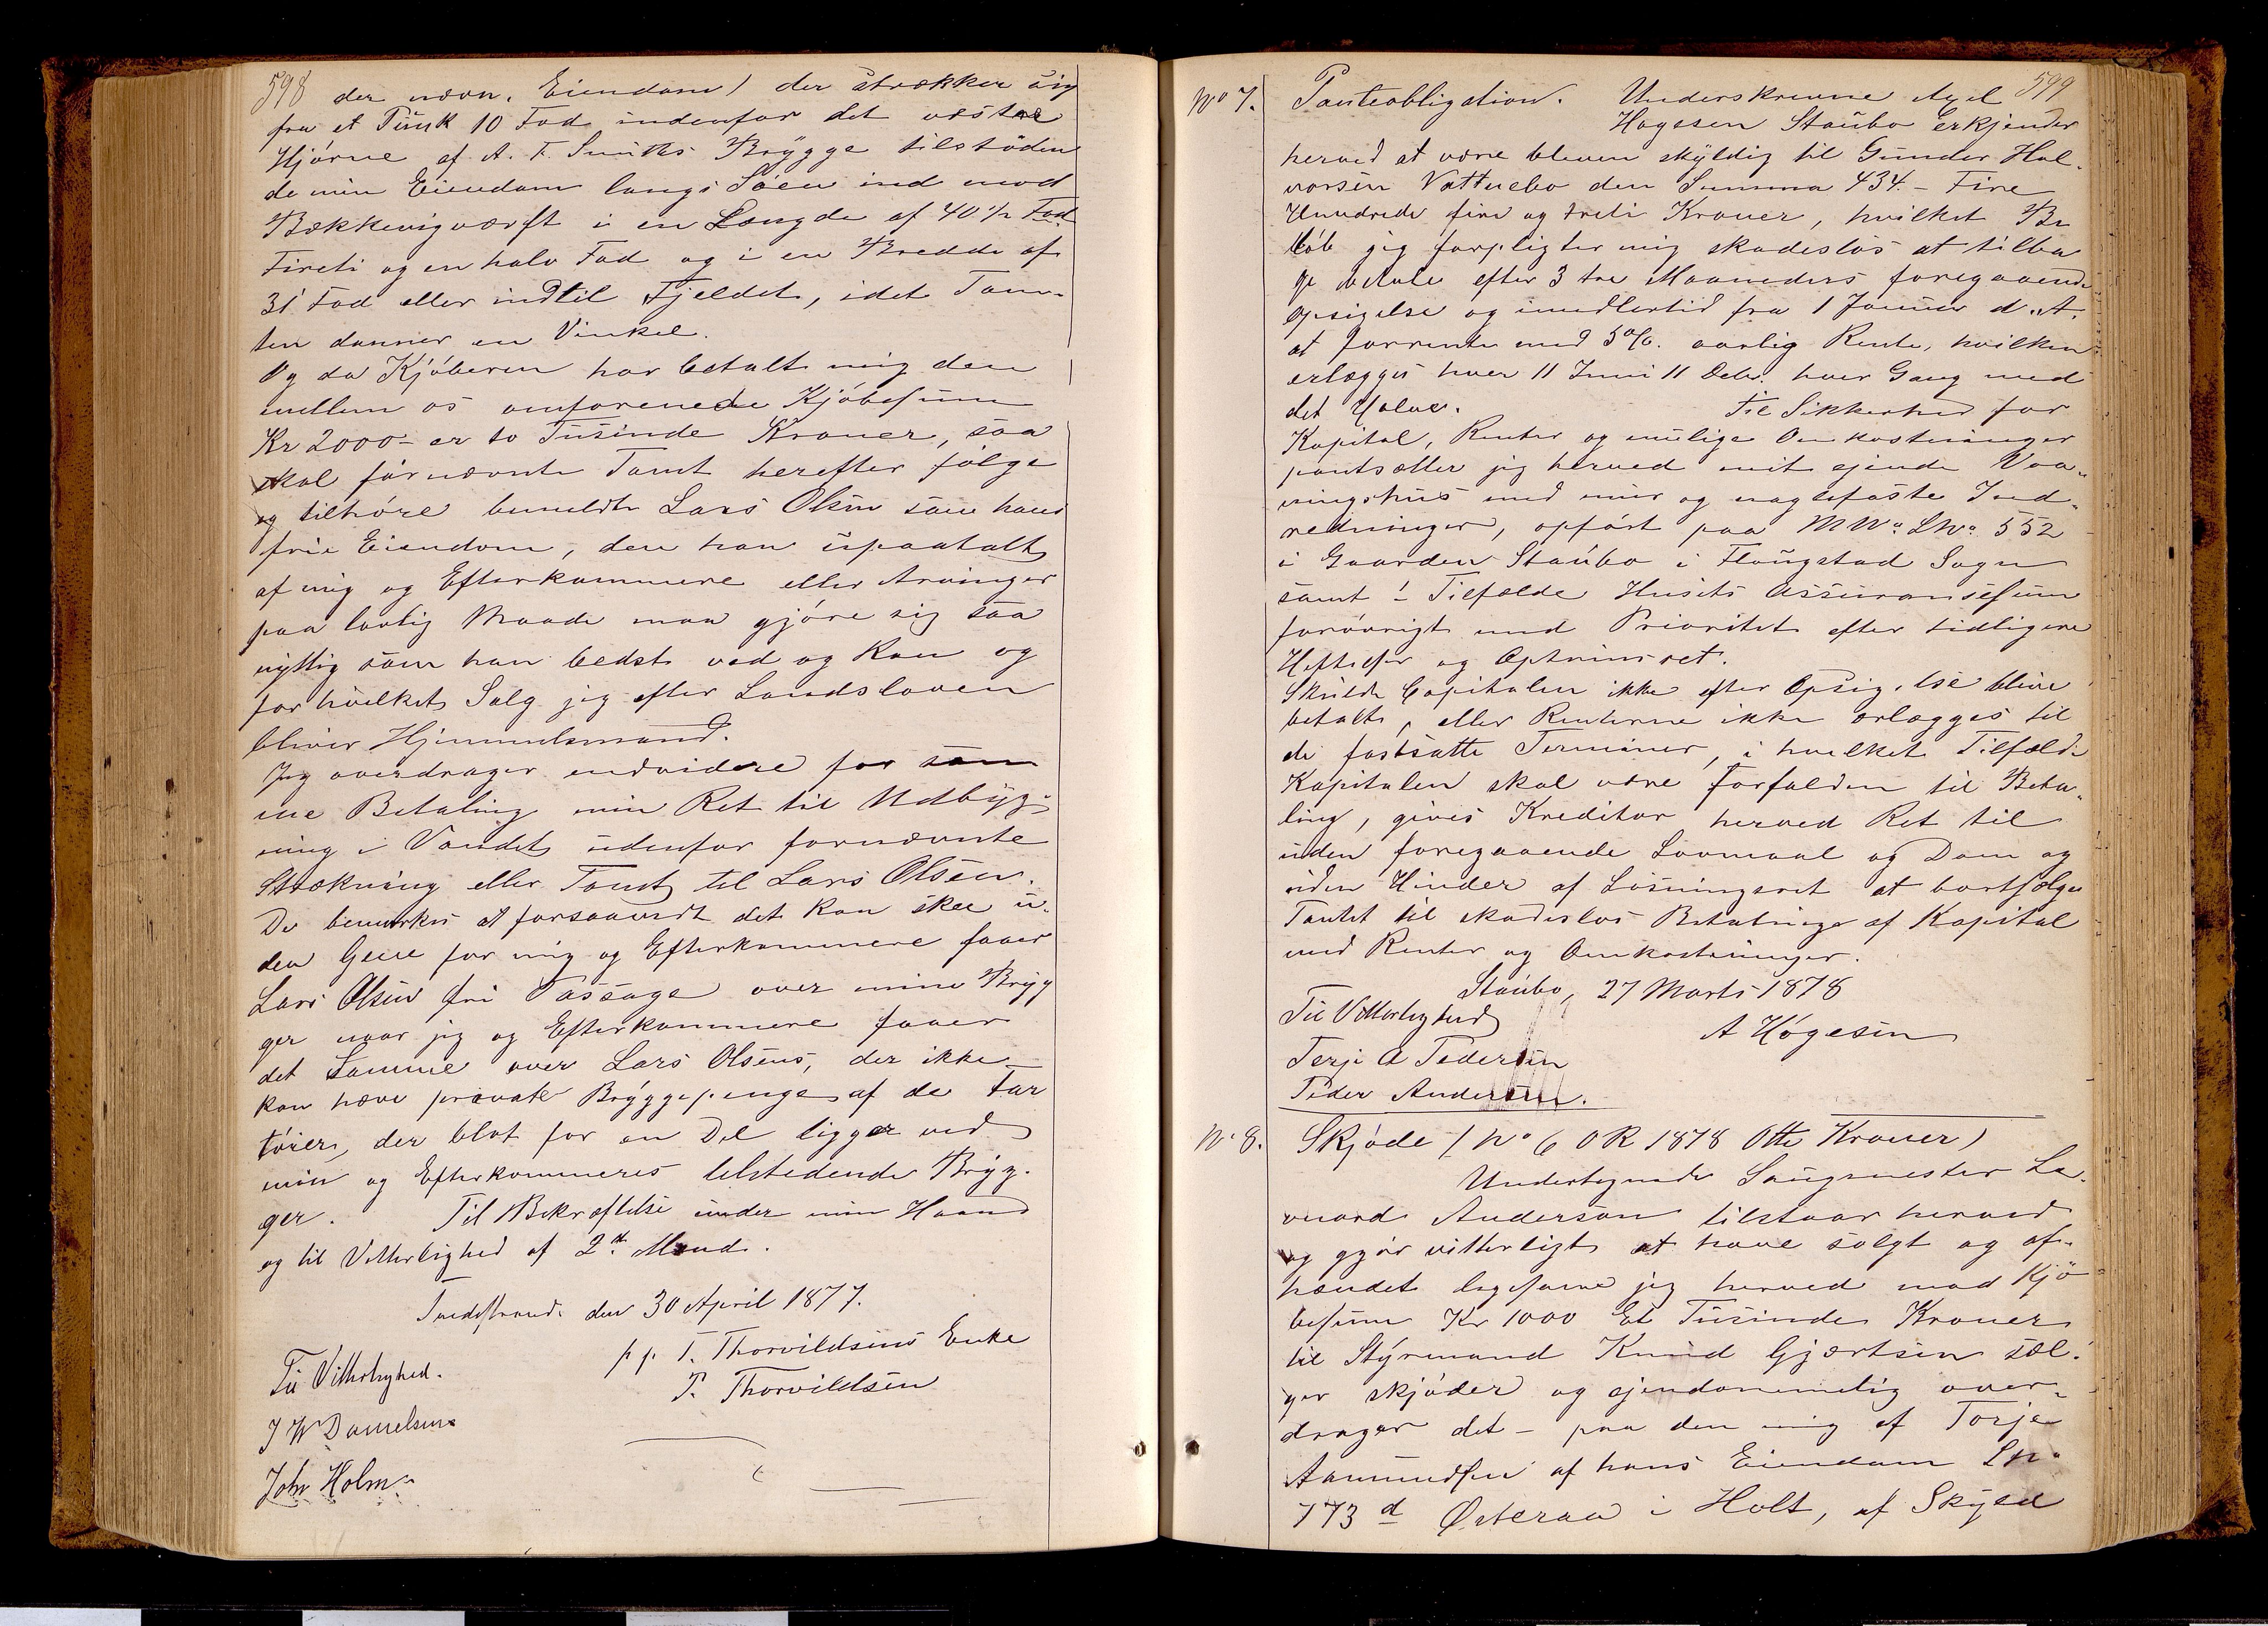 598
der nævn. Eiendom) der strækker sig
fra et Punk 10 Fod indenfor det vestre
Hjørne af A. F. Smiths Brygge tilstøden
de min Eiendom langs Søen ind mod
Bækkevigværft i en Længde af 40 1/2 Fod
Fireti og en halv Fod og i en Bredde af
31 Fod eller indtil Fjeldet, idet Tom-
ten danner en Vinkel.
Og da Kjøberen har betalt mig den
mellem os omforenede Kjøbesum
Kr 2000- er to Tusinde Kroner, saa
skal førnævnte Tomt herefter følge
og tilhøre bemeldte Lars Olsen som hans
frie Eiendom, den han upaatalt
af mig og Efterkommere eller Arvinger
paa lovlig Maade maa gjøre sig saa
nyttig som han bedst ved og kan og
for hvilket Salg jeg efter Landsloven
bliver Hjemmelsmand.
Jeg overdrager endvidere for sam
me Betaling min Ret til Udbyg-
ning i Vandet udenfor fornævnte
Strækning eller Tomt til Lars Olsen.
De bemerkes at forsaavidt det kan skee u-
den Gene for mig og Efterkommere faaer
Lars Olsen fri Passage over mine Bryg
ger naar jeg og Efterkommere faaer
det Samme over Lars Olsens, der ikke
kan hæve private Bryggepenge af de Far
tøier, der blot for en Del ligger ved
min og Efterkommeres tilstedende Bryg-
ger. Til Bekræftelse under min Haand
og til Vitterlighed af 2de Mænd.
Tvedestrand den 30 April 1877.
pp. T. Thorvildsens Enke
T. Thorvildsen
Til Vitterlighed.
J W Danielsen
John Holm
599
No 7. Panteobligation. Underskrevne Axel
Hagesen Staubø Erkjender
herved at være bleven skyldig til Gunder Hal-
vorsen Vatnebo den Summa 434.- Fire
Hundrede fire og treti Kroner, hvilket Be
løb jeg forpligter mig skadesløs at tilba
ge betale efter 3 tre Maaneders foregaaende
Opsigelse og imidlertid fra 1 Januar d. A.
at forrente med 5%. aarlig Rente, hvilken
erlægges hver 11 Juni 11 Decbr. hver Gang med
det Halve. Til Sikkerhed for
Kapital, Renter og mulige Omkostninger
pantsætter jeg herved mit eiende Vaa-
ningshus med mur og naglefaste Ind-
redninger, opført paa M No. L No. 552
i Gaarden Staubø i Flaugstad Sogn
samt i Tilfælde Husets Assuransesum
forøvrigt med Prioritet efter tidligere
Heftelser og Optrinsret.
Skulde Capitalen ikke efter Opsigelse blive
betalt, eller Renterne ikke erlægges til
de fastsatte Terminer, i hvilket Tilfælde
Kapitalen skal være forfalden til Beta-
ling, gives Kreditor herved Ret til
uden foregaaende Lovmaal og Dom og
uden Hinder af Løsningsret at bortsælge
Pantet til skadesløs Betaling af Kapital
med Renter og Omkostninger.
Staubø, 27 Marts 1878
Til Vitterlighed
A Høgesen
Terje A Pedersen
Peder Andersen.
No 8. Skjøde (No 6 OR 1878 Otte Kroner)
Undertegnede Saugmester Le-
onard Anderson tilstaar herved
og gjør vitterligt at have solgt og af-
hændet ligesom jeg herved mod Kjø
besum Kr 1000 Et Tusinde Kroner
til Styrmand Knud Gjertsen sæl-
ger skjøder og ejendommelig over-
drager det - paa den mig af Terje
Aamundsen af hans Eiendom L No
773 d Østeraa i Holt, af Skyld